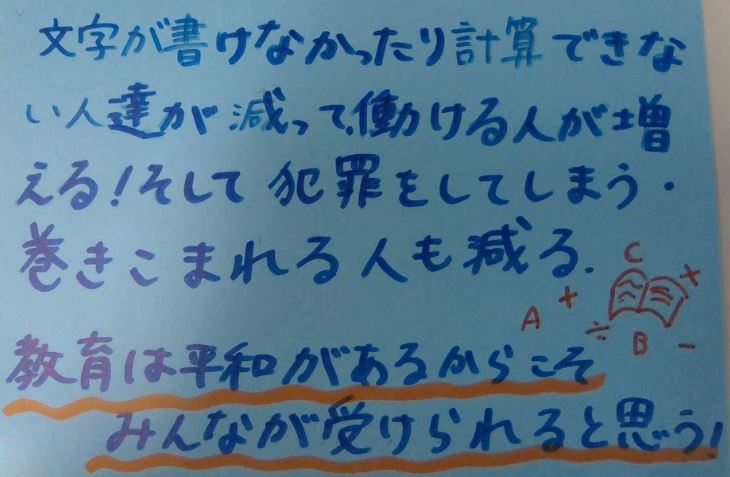 文字が書けなかったり計算できな
い人達が減って、働ける人が増
える！そして犯罪をしてしまう・
巻きこまれる人も減る.
C
A + ÷ B - ×
教育は平和があるからこそ
みんなが受けられると思う！